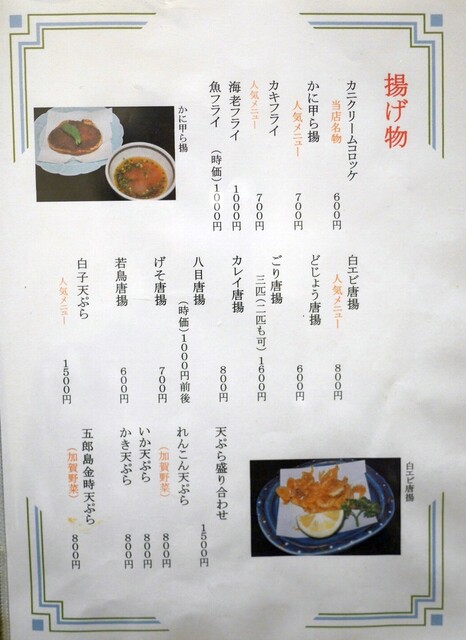 揚げ物
カニクリームコロッケ
当店名物
600円
かに甲ら揚
人気メニュー
700円
カキフライ
人気メニュー
700円
海老フライ
1000円
魚フライ
(時価)1000円
かに甲ら揚
白エビ唐揚
人気メニュー
800円
どじょう唐揚
600円
ごり唐揚
三匹(二匹も可)1600円
カレイ唐揚
800円
八目唐揚
(時価)1000円前後
げそ唐揚
700円
若鳥唐揚
600円
白子天ぷら
人気メニュー
1500円
白エビ唐揚
天ぷら盛り合わせ
1500円
れんこん天ぷら
(加賀野菜)
800円
いか天ぷら
800円
かき天ぷら
800円
五郎島金時天ぷら
(加賀野菜)
800円